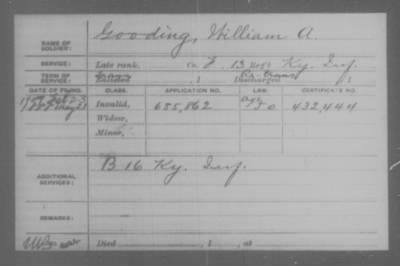 NAME OF SOLDIER: Gooding, William A.
SERVICE: Late rank, Co. F, 13 Reg't Ky. Inf.
TERM OF SERVICE: Enlisted , 1 Discharged , 1
DATE OF FILING. CLASS. APPLICATION NO. LAW. CERTIFICATE NO.
Invalid, 655,862 432,444
Widow,
Minor,
ADDITIONAL SERVICES: B 16 Ky. Inf.
REMARKS:
Died , 1 , at